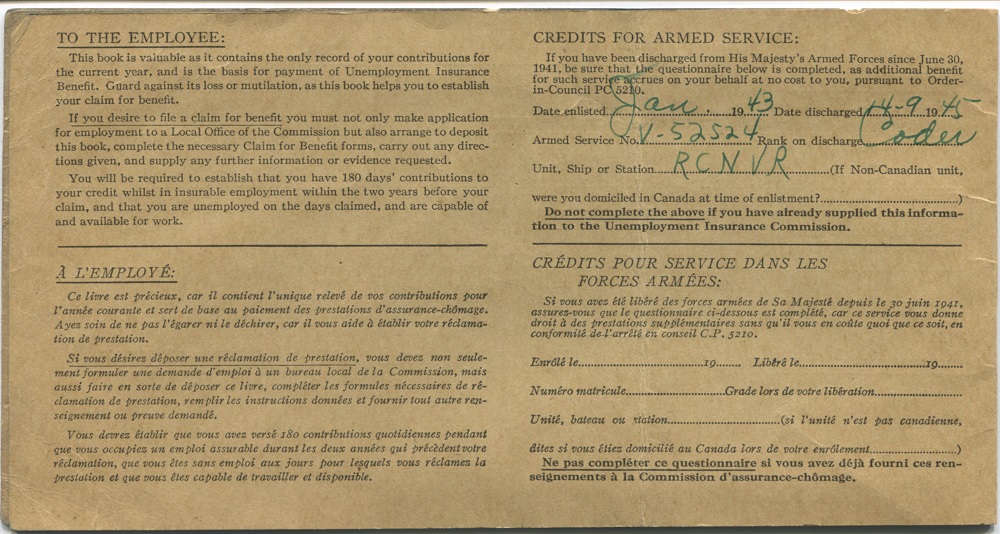 TO THE EMPLOYEE:
This book is valuable as it contains the only record of your contributions for
the current year, and is the basis for payment of Unemployment Insurance
Benefit. Guard against its loss or mutilation, as this book helps you to establish
your claim for benefit.
If you desire to file a claim for benefit you must not only make application
for employment to a Local Office of the Commission but also arrange to deposit
this book, complete the necessary Claim for Benefit forms, carry out any direc-
tions given, and supply any further information or evidence requested.
You will be required to establish that you have 180 days' contributions to
your credit whilst in insurable employment within the two years before your
claim, and that you are unemployed on the days claimed, and are capable of
and available for work.
À L'EMPLOYÉ:
Ce livre est précieux, car il contient l'unique relevé de vos contributions pour
l'année courante et sert de base au paiement des prestations d'assurance-chômage.
Ayez soin de ne pas l'égarer ni le déchirer, car il vous aide à établir votre réclama-
tion de prestation.
Si vous désirez déposer une réclamation de prestation, vous devez non seule-
ment formuler une demande d'emploi à un bureau local de la Commission, mais
aussi faire en sorte de déposer ce livre, compléter les formules nécessaires de ré-
clamation de prestation, remplir les instructions données et fournir tout autre ren-
seignement ou preuve demandé.
Vous devrez établir que vous avez versé 180 contributions quotidiennes pendant
que vous occupiez un emploi assurable durant les deux années qui précèdent votre
réclamation, que vous êtes sans emploi aux jours pour lesquels vous réclamez la
prestation et que vous êtes capable de travailler et disponible.
CREDITS FOR ARMED SERVICE:
If you have been discharged from His Majesty's Armed Forces since June 30,
1941, be sure that the questionnaire below is completed, as additional benefit
for such service accrues on your behalf at no cost to you, pursuant to Order-
in-Council PC 5210.
Date enlisted Jan 1943 Date discharged 14-9 1945
Armed Service No. V-52524 Rank on discharge Coder
Unit, Ship or Station RCNVR (If Non-Canadian unit,
were you domiciled in Canada at time of enlistment? )
Do not complete the above if you have already supplied this informa-
tion to the Unemployment Insurance Commission.
CRÉDITS POUR SERVICE DANS LES
FORCES ARMÉES:
Si vous avez été libéré des forces armées de Sa Majesté depuis le 30 juin 1941,
assurez-vous que le questionnaire ci-dessous est complété, car ce service vous donne
droit à des prestations supplémentaires sans qu'il vous en coûte quoi que ce soit, en
conformité de l'arrêté en conseil C.P. 5210.
Enrôlé le 19 Libéré le 19
Numéro matricule Grade lors de votre libération
Unité, bateau ou station (si l'unité n'est pas canadienne,
dites si vous étiez domicilié au Canada lors de votre enrôlement )
Ne pas compléter ce questionnaire si vous avez déjà fourni ces ren-
seignements à la Commission d'assurance-chômage.